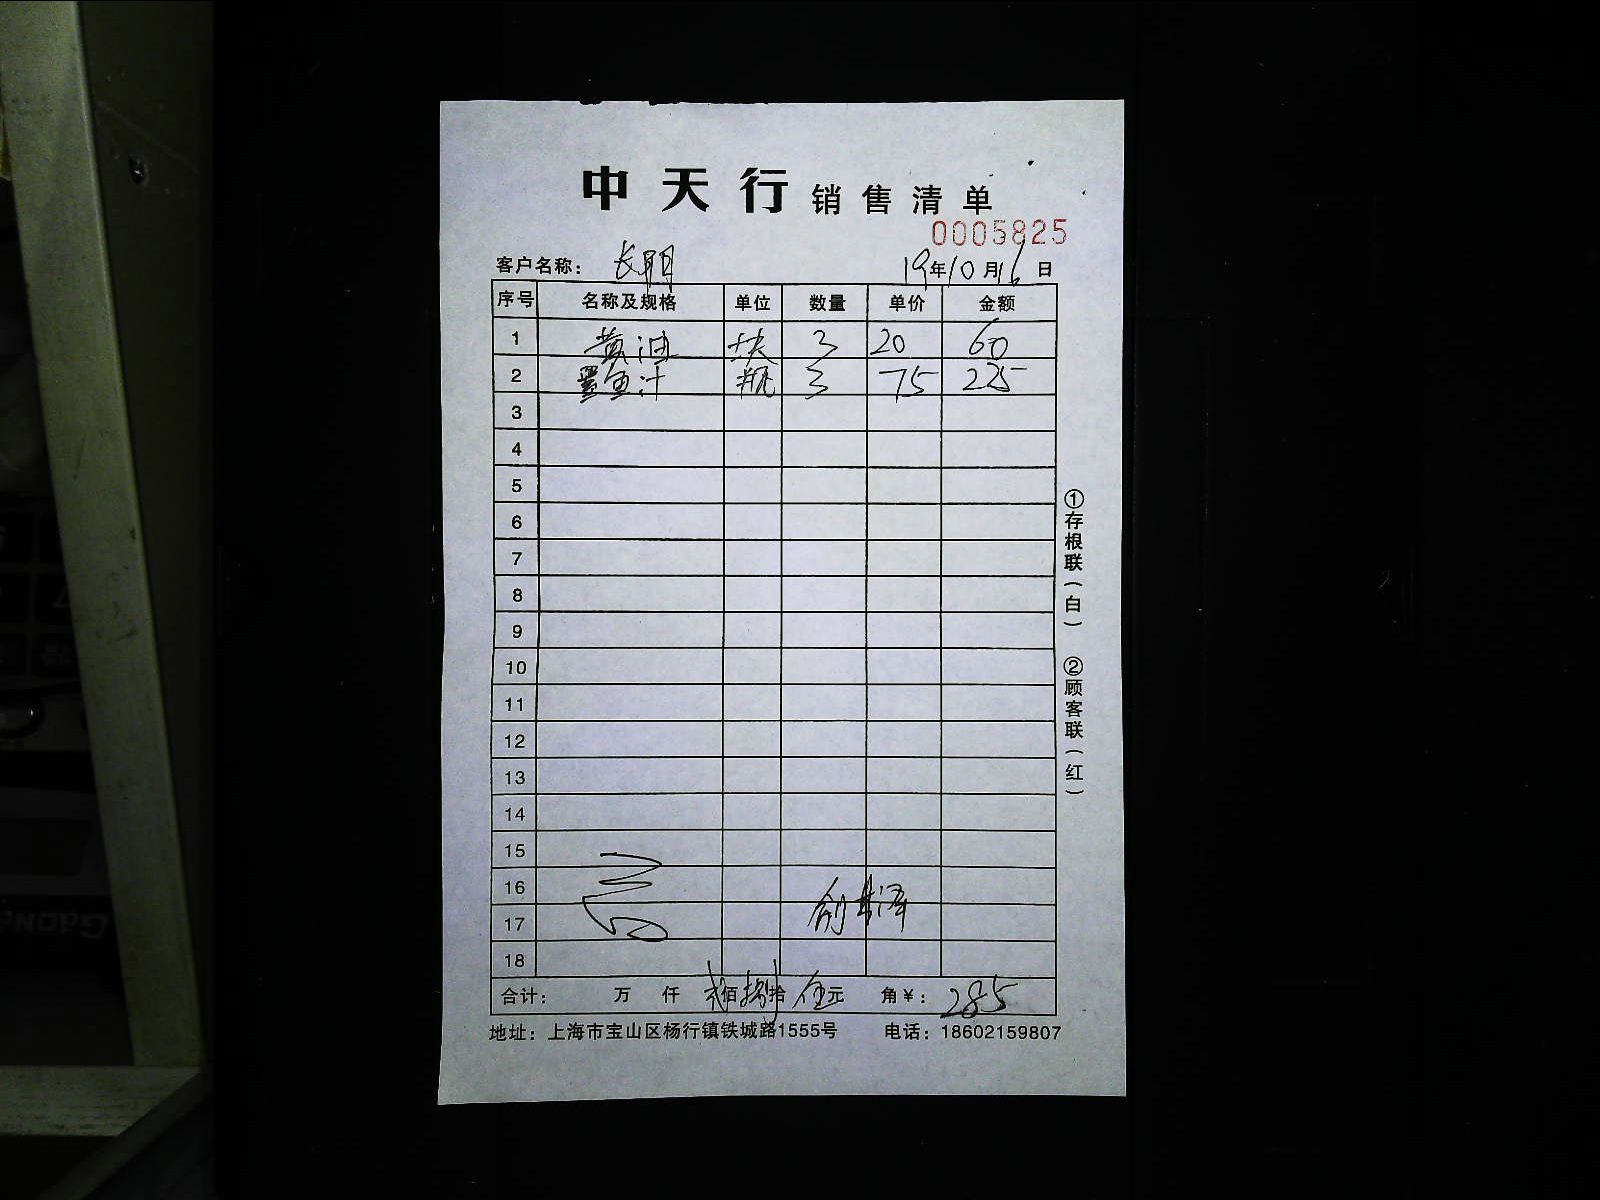 中天行 销售清单
0005825
客户名称： 19年10月16日
序号 名称及规格 单位 数量 单价 金额
1 黄油 块 3 20 60
2 墨鱼汁 瓶 3 75 225
3
4
5
6
7
8
9
10
11
12
13
14
15
16
17
18
合计： 万 仟 贰佰捌拾伍元 角￥：285
地址：上海市宝山区杨行镇铁城路1555号 电话：18602159807
①存根联（白） ②顾客联（红）